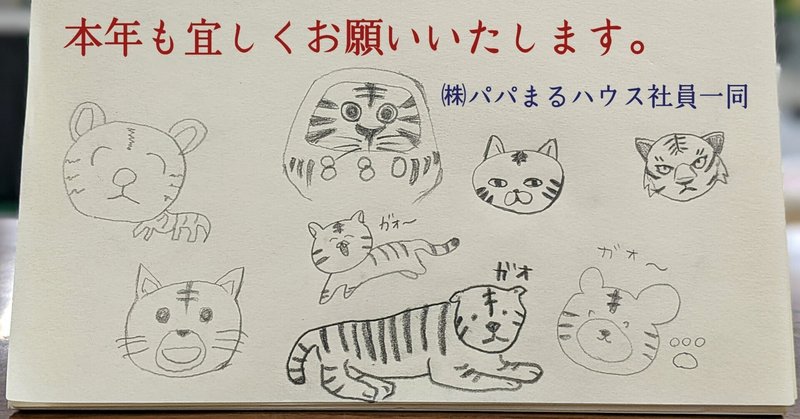 本年も宜しくお願いいたします。
㈱パパまるハウス社員一同
880
ガオ～
ガオ
ガオ～